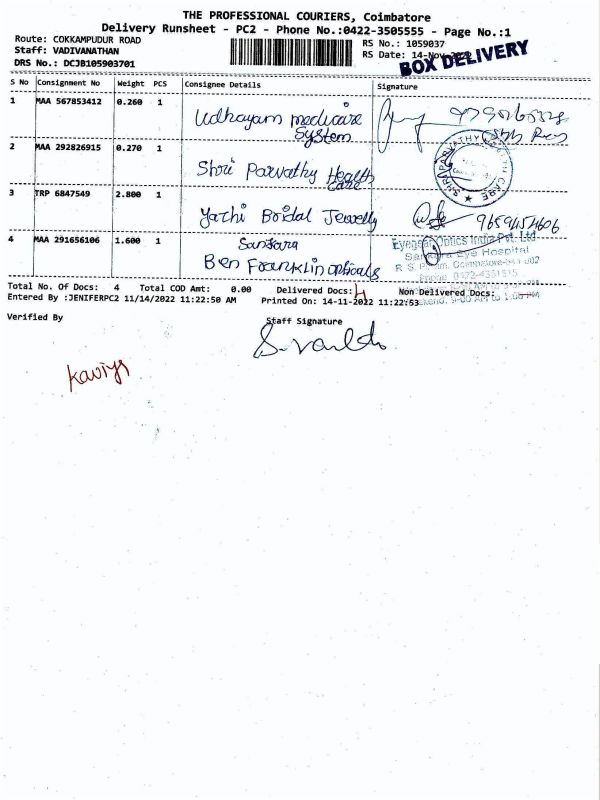 THE PROFESSIONAL COURIERS, Coimbatore
Delivery Runsheet - PC2 - Phone No.:0422-3505555 - Page No.:1
Route: COKKAMPUDUR ROAD
RS No.: 1059037
Staff: VADIVANATHAN
RS Date: 14-Nov-2022
BOX DELIVERY
DRS No.: DCJB105903701
S No Consignment No Weight PCS Consignee Details Signature
1 MAA 567853412 0.260 1 Udhayam medicare
System
2 MAA 292826915 0.270 1 Shri Parvathy Health
care
3 TRP 6847549 2.800 1 Yazhi Bridal Jewelly 9659454606
4 MAA 291656106 1.600 1 Sankara
Ben Franklin opticals
Eyegear Optics India Pvt. Ltd
Sankara Eye Hospital
Total No. Of Docs: 4 Total COD Amt: 0.00 Delivered Docs: 4 Non Delivered Docs:
Entered By :JENIFERPC2 11/14/2022 11:22:50 AM Printed On: 14-11-2022 11:22:53
Verified By Staff Signature
Kaviya